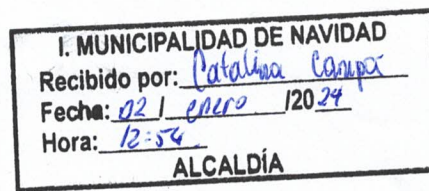 I. MUNICIPALIDAD DE NAVIDAD
Recibido por: Catalina
Fecha: 02 / enero /2024
Hora: 12:54
ALCALDÍA